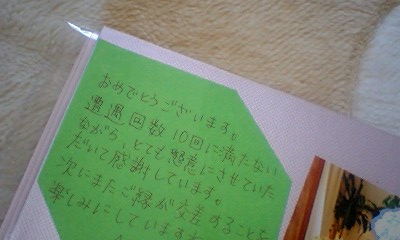 おめでとうございます。
遭遇回数10回に満たない
ながら、とても懇意にさせていた
だいて感謝しています。
次にまたご縁が交差することを
楽しみにしていますが